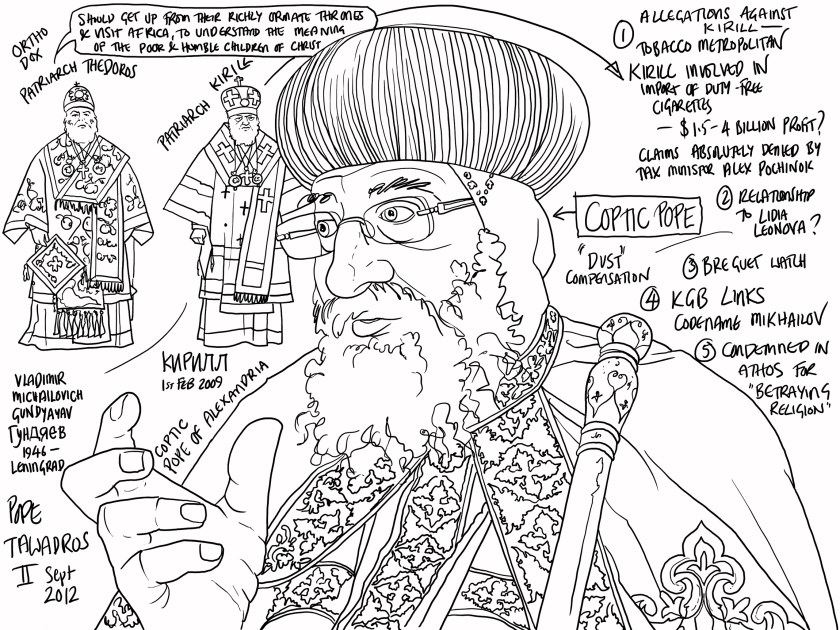 SHOULD GET UP FROM THEIR RICHLY ORNATE THRONES
& VISIT AFRICA, TO UNDERSTAND THE MEANING
OF THE POOR & HUMBLE CHILDREN OF CHRIST
ORTHO
DOX
PATRIARCH THEDOROS
PATRIARCH KIRILL
① ALLEGATIONS AGAINST
KIRILL —
TOBACCO METROPOLITAN
KIRILL INVOLVED IN
IMPORT OF DUTY-FREE
CIGARETTES
— $1.5-4 BILLION PROFIT?
CLAIMS ABSOLUTELY DENIED BY
TAX MINISTER ALEX POCHINOK
② RELATIONSHIP
TO LIDIA
LEONOVA?
COPTIC POPE
"DUST"
COMPENSATION
③ BREGUET WATCH
④ KGB LINKS
CODENAME MIKHAILOV
⑤ CONDEMNED IN
ATHOS FOR
"BETRAYING
RELIGION"
КИРИЛЛ
1ST FEB 2009
VLADIMIR
MICHAILOVICH
GUNDYAYAV
ГУНДЯЕВ
1946 —
LENINGRAD
COPTIC
POPE OF ALEXANDRIA
POPE
TAWADROS
II Sept
2012